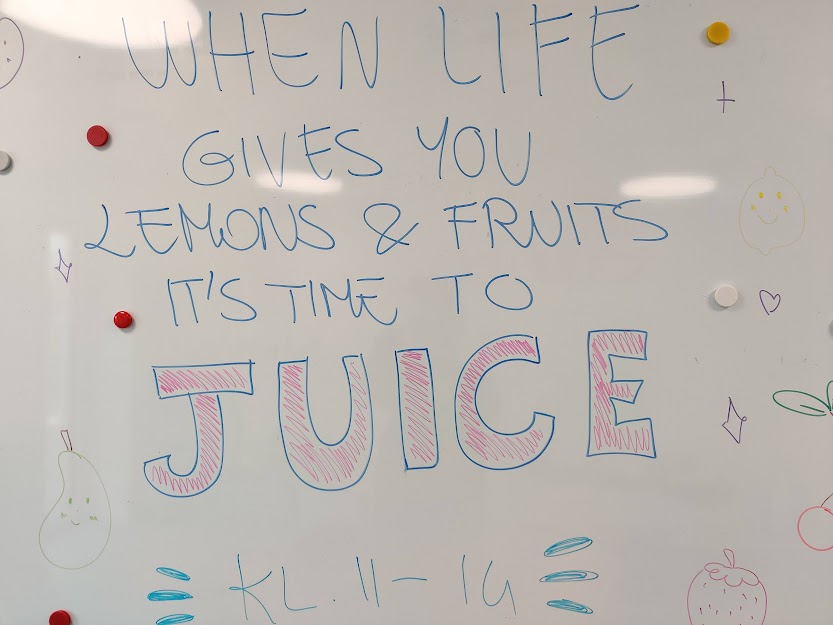 WHEN LIFE
GIVES YOU
LEMONS & FRUITS
IT'S TIME TO
JUICE
KL. 11 - 14